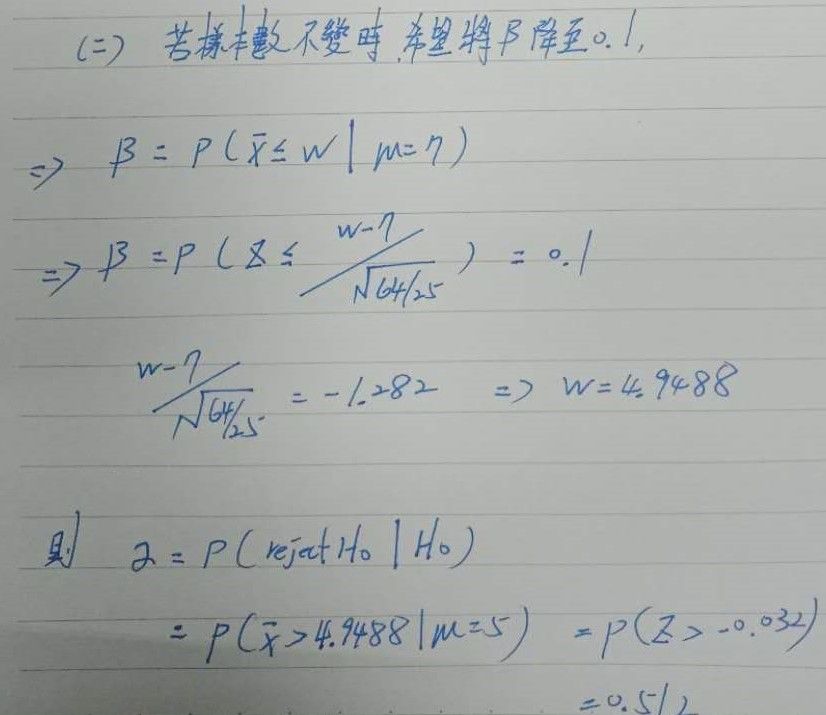 (二) 若樣本數不變時,希望將β降至0.1,
⇒ β = P( x̄ ≤ W | μ=7 )
⇒ β = P ( Z ≤ (W-7)/√(64/25) ) = 0.1
(W-7)/√(64/25) = -1.282 ⇒ W = 4.9488
則 α = P( reject H₀ | H₀ )
= P( x̄ > 4.9488 | μ=5 ) = P( Z > -0.032 )
= 0.512